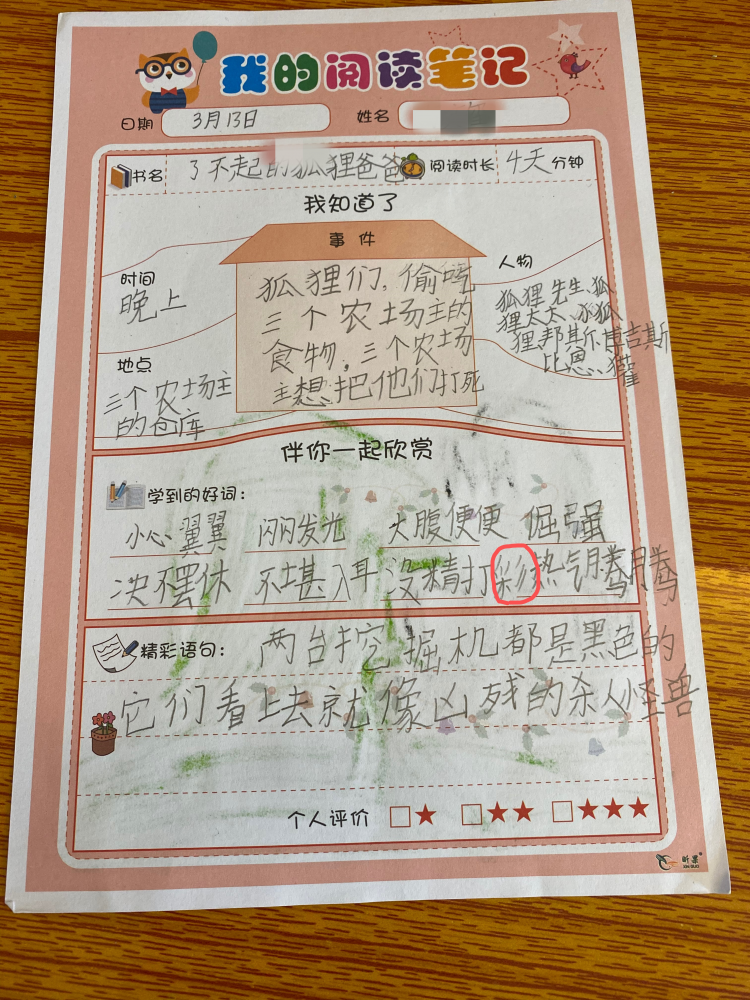 我的阅读笔记
日期 3月13日 姓名
书名 了不起的狐狸爸爸 阅读时长 4天 分钟
我知道了
事件
时间
晚上
地点
三个农场主
的仓库
狐狸们,偷吃
三个农场主的
食物,三个农场
主想把他们打死
人物
狐狸先生、狐
狸太太、小狐
狸邦斯、博吉斯
比恩、獾
伴你一起欣赏
学到的好词:
小心翼翼 闪闪发光 大腹便便 倔强
决不罢休 不堪入耳 没精打彩 热气腾腾
精彩语句: 两台挖掘机都是黑色的
它们看上去就像凶残的杀人怪兽
个人评价 □★ □★★ □★★★
昕果